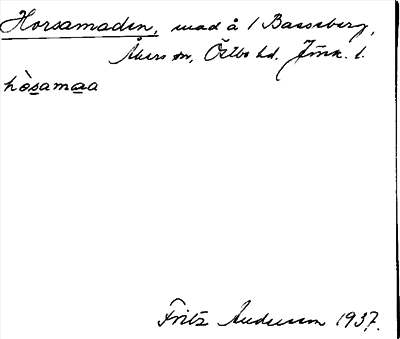 Horsamaden, mad å 1 Basseberg,
Åkers sn, Östbo hd. Jönk. l.
hòsamaa
Fritz Andersson 1937.